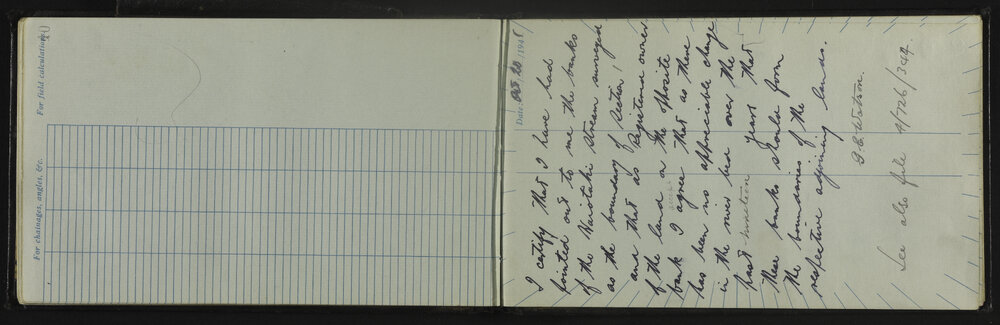 For field calculations
For chainages, angles, &c.
Date, Oct. 20 1941
I certify that I have had
pointed out to me the banks
of the stream surveyed
as the boundary of Section 1
and that as Registered owner
of the land on the opposite
bank I agree that as there
has been no appreciable change
in the river bed over the
past years that
these banks should form
the boundaries of the
respective adjoining lands.
Watson.
See also file 9/726/344.